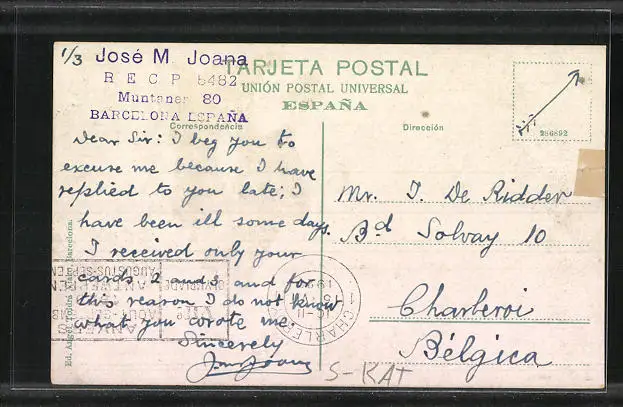 1/3 José M. Joana
RECP 5482
Muntaner 80
BARCELONA ESPAÑA
TARJETA POSTAL
UNIÓN POSTAL UNIVERSAL
ESPAÑA
286892
Correspondencia
Dirección
Dear Sir: I beg you to
excuse me because I have
replied to you late; I
have been ill some days.
I received only your
cards 2 and 3 and for
this reason I do not know
what you wrote me.
Sincerely
Mr. J. De Ridder
Bd Solvay 10
Charleroi
Bélgica
S-KAT
CHARLEROI
ANTWERPEN
AUGUSTUS-SEPTEM
Ed. Barcelona.